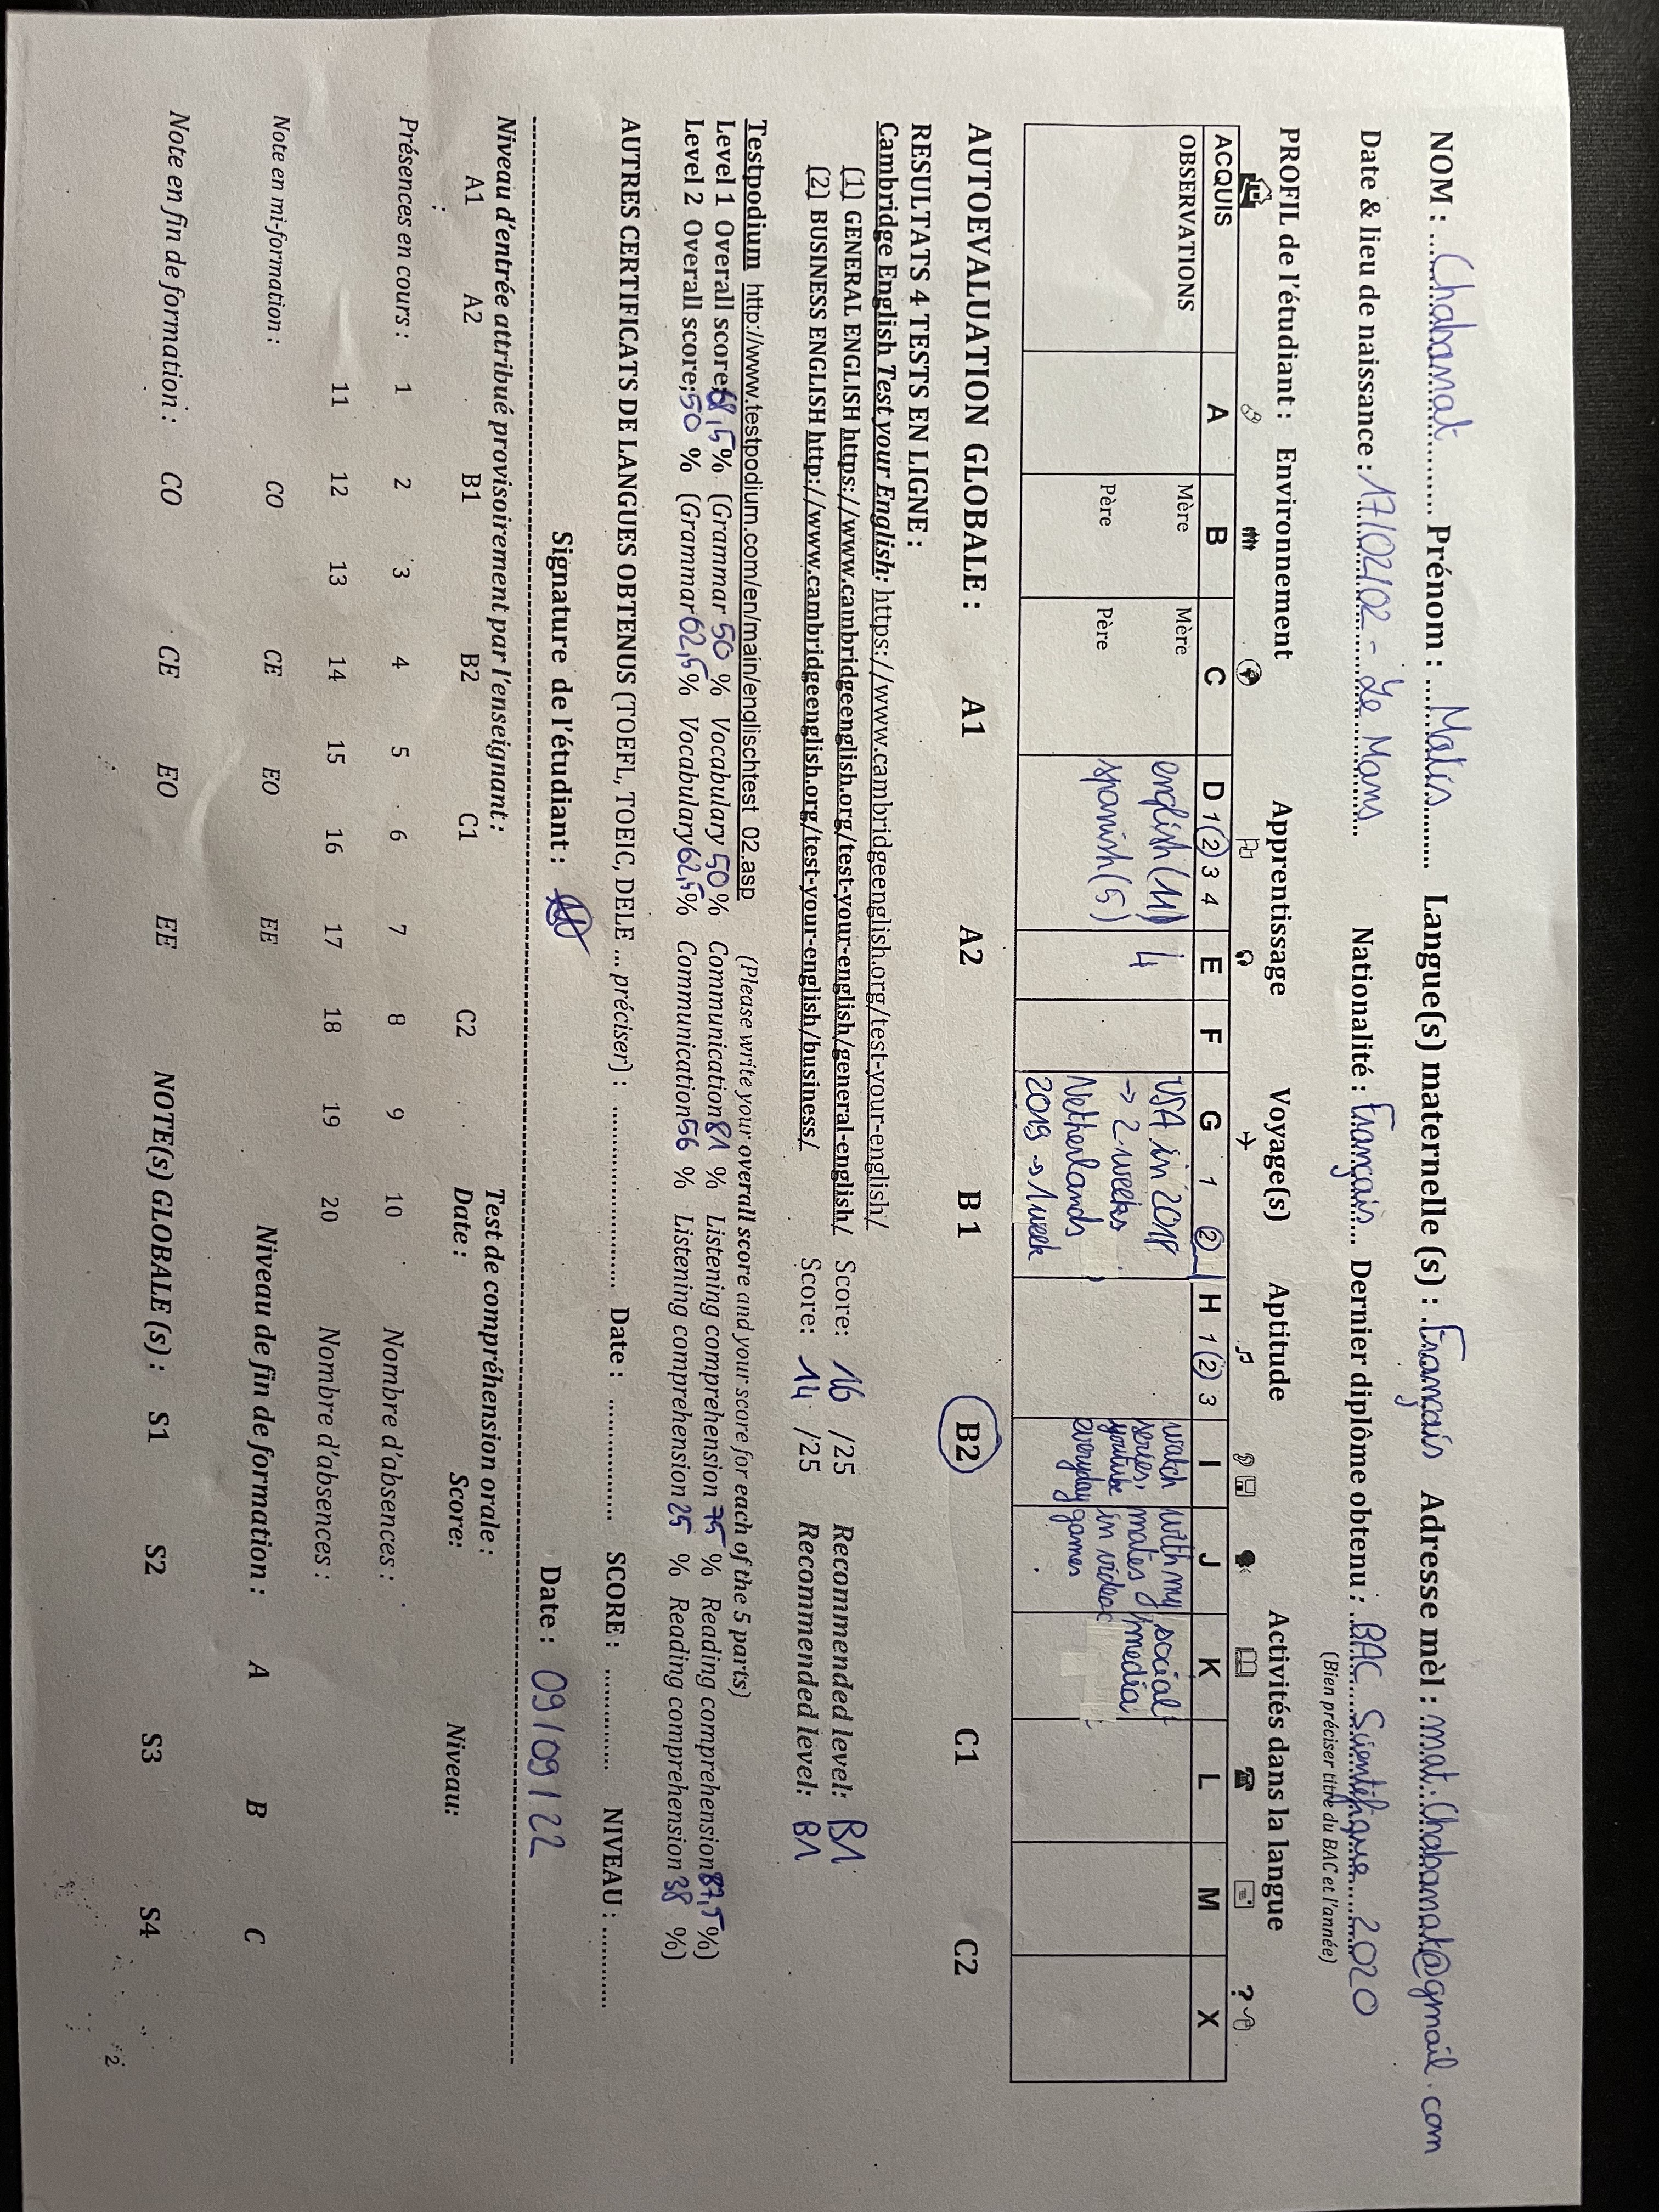 NOM : Chabanat Prénom : Matis Langue(s) maternelle (s) : Français Adresse mèl : mat.Chabanat@gmail.com
Date & lieu de naissance : 17/02/02 - Le Mans Nationalité : Français Dernier diplôme obtenu : BAC Scientifique 2020
(Bien préciser titre du BAC et l'année)
PROFIL de l'étudiant : Environnement Apprentissage Voyage(s) Aptitude Activités dans la langue
?
ACQUIS A B C D 1 2 3 4 E F G 1 2 H 1 2 3 I J K L M X
OBSERVATIONS Mère Mère english (11) 4 USA in 2018 watch with my social
series, mates media
→ 2 weeks youtube in video
Père Père spanish (5) Netherlands everyday games
2019 → 1 week
AUTOEVALUATION GLOBALE : A1 A2 B 1 B2 C1 C2
RESULTATS 4 TESTS EN LIGNE :
Cambridge English Test your English: https://www.cambridgeenglish.org/test-your-english/
(1) GENERAL ENGLISH https://www.cambridgeenglish.org/test-your-english/general-english/ Score: 16 /25 Recommended level: B1
(2) BUSINESS ENGLISH http://www.cambridgeenglish.org/test-your-english/business/ Score: 14 /25 Recommended level: B1
Testpodium http://www.testpodium.com/en/main/englischtest_02.asp (Please write your overall score and your score for each of the 5 parts)
Level 1 Overall score: 68,5% (Grammar 50 % Vocabulary 50% Communication 81 % Listening comprehension 75 % Reading comprehension 87,5%)
Level 2 Overall score; 50 % (Grammar 62,5% Vocabulary 62,5% Communication 56 % Listening comprehension 25 % Reading comprehension 38 %)
AUTRES CERTIFICATS DE LANGUES OBTENUS (TOEFL, TOEIC, DELE ... préciser) : Date : SCORE : NIVEAU :
Signature de l'étudiant : Date : 09/09/22
Niveau d'entrée attribué provisoirement par l'enseignant : Test de compréhension orale :
A1 A2 B1 B2 C1 C2 Date : Score: Niveau:
:
Présences en cours : 1 2 3 4 5 6 7 8 9 10 Nombre d'absences :
11 12 13 14 15 16 17 18 19 20 Nombre d'absences :
Note en mi-formation : CO CE EO EE Niveau de fin de formation : A B C
Note en fin de formation : CO CE EO EE NOTE(s) GLOBALE (s) : S1 S2 S3 S4
2